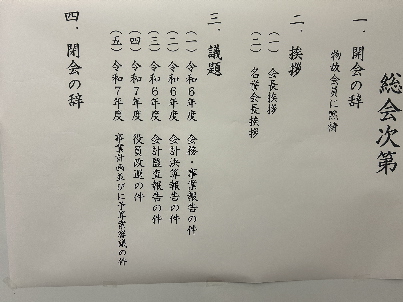 総会次第
一．開会の辞
物故会員に黙祷
二．挨拶
（一）会長挨拶
（二）名誉会長挨拶
三．議題
（一）令和６年度　会務・事業報告の件
（二）令和６年度　会計決算報告の件
（三）令和６年度　会計監査報告の件
（四）令和７年度　役員改選の件
（五）令和７年度　事業計画並びに予算案審議の件
四．閉会の辞